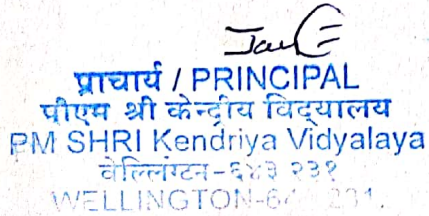 प्राचार्य / PRINCIPAL
पीएम श्री केन्द्रीय विद्यालय
PM SHRI Kendriya Vidyalaya
वेल्लिंगटन-६४३ २३१
WELLINGTON-643 231.